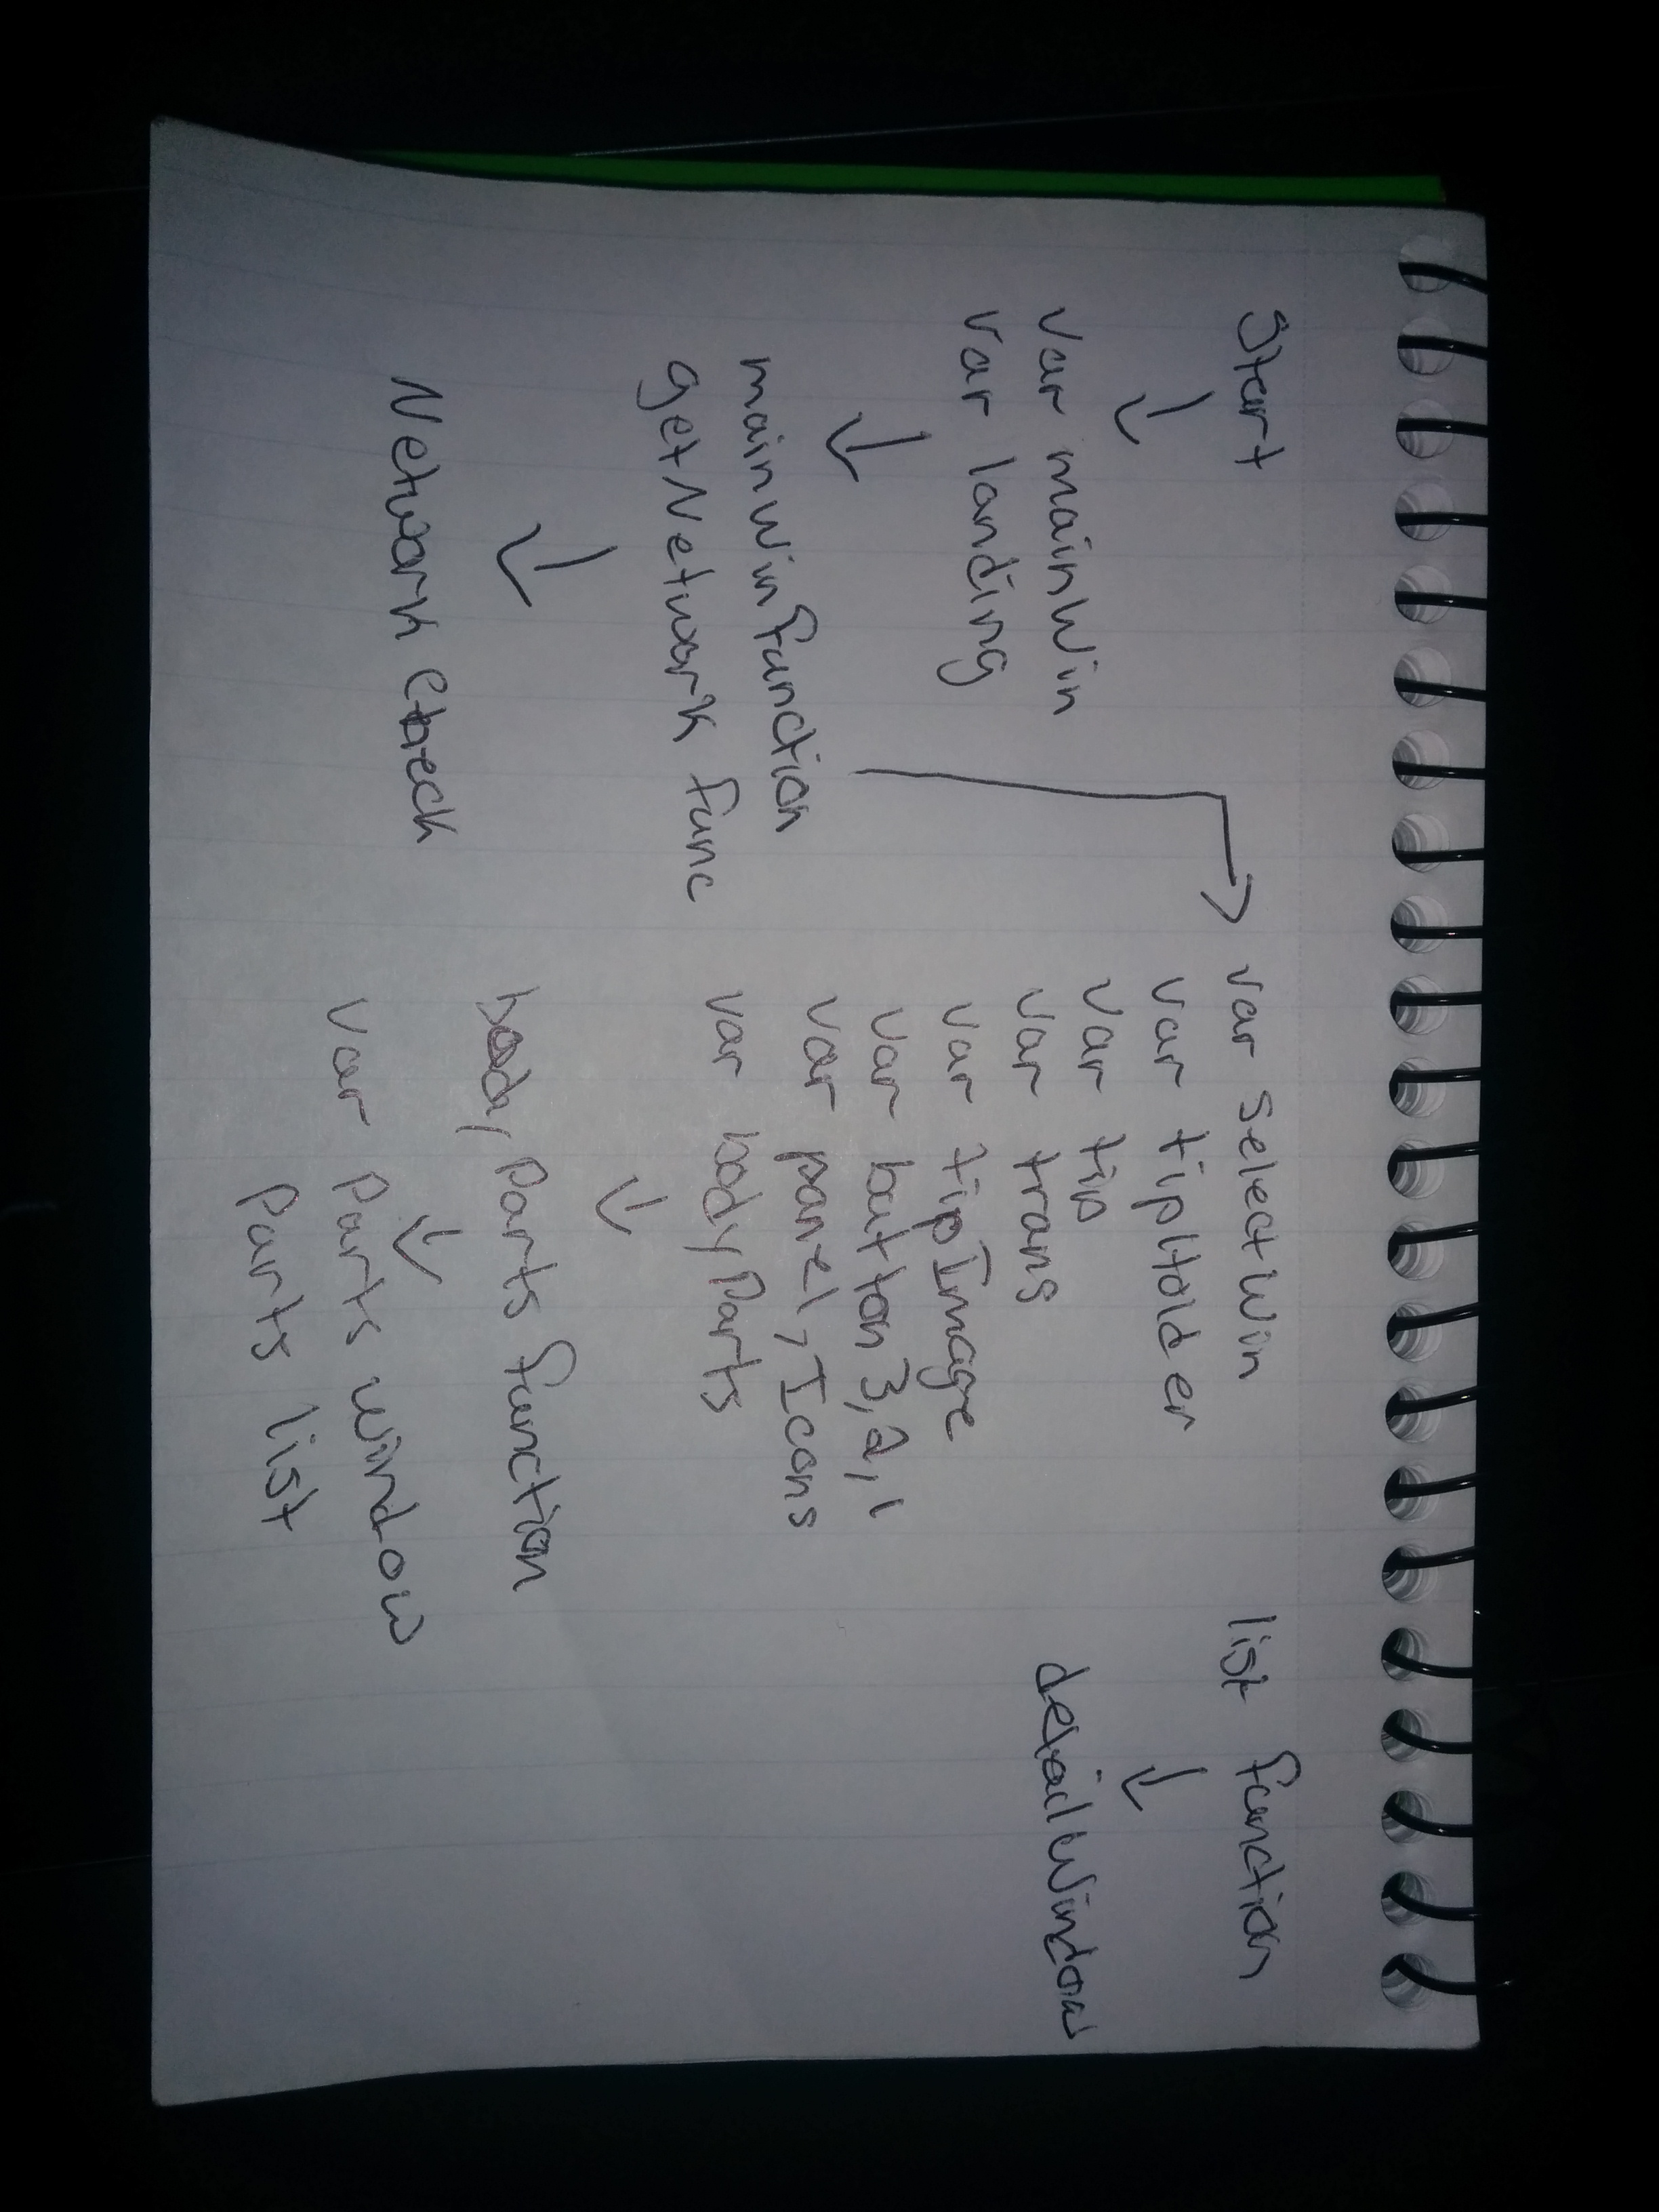 Start
↓
var mainWin
var landing
↓
mainwinfunction
getNetwork func
↓
Network check
var selectWin
var tipHolder
var tip
var trans
var tipImage
var button 3,2,1
var panel, Icons
var bodyParts
↓
body Parts function
↓
var Parts window
Parts list
list function
↓
detailWindow